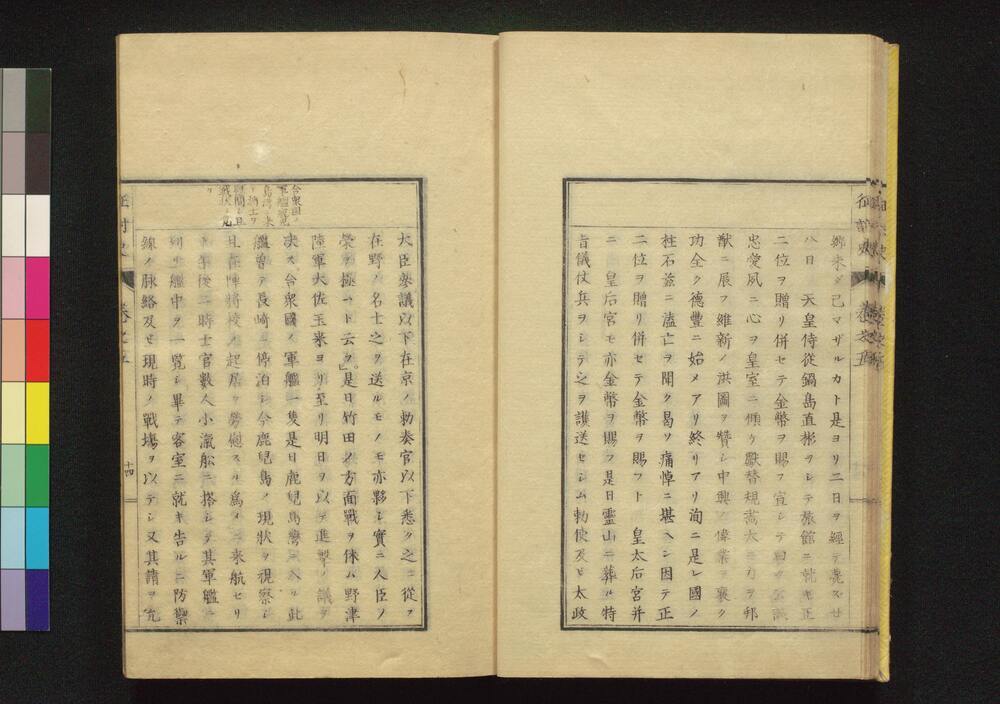 郷未ダ已マザルカト是ヨリ二日ヲ經テ薨ズ廿
八日　天皇侍從鍋島直彬ヲシテ旅館ニ就キ正
二位ヲ贈リ併セテ金幣ヲ賜フ宣シテ曰ク
忠愛夙ニ心ヲ皇室ニ傾ク獻替規畫大ニ力ヲ邦
猷ニ展フ維新ノ洪圖ヲ贊シ中興ノ偉業ヲ襄ク
功全ク德豐ニ始メアリ終リアリ洵ニ是レ國ノ
柱石茲ニ溘亡ヲ聞ク曷ソ痛悼ニ堪ヘン因テ正
二位ヲ贈リ併セテ金幣ヲ賜フト　皇太后宮并
ニ　皇后宮モ亦金幣ヲ賜フ是日霊山ニ葬ル特
旨儀仗兵ヲシテ之ヲ護送セシム勅使及ビ太政
大臣參議以下在京ノ勅奏官以下悉ク之ニ從フ
在野ノ名士之ヲ送ルモノモ亦夥シ實ニ人臣ノ
榮ヲ極ムト云フ」。是日竹田ノ方面戰ヲ休ム野津
陸軍大佐玉来ヨリ至リ明日ヲ以テ進撃ノ議ヲ
決ス合衆國ノ軍艦一隻是日鹿兒島灣ニ入ル此
艦曽テ長崎ニ停泊シ今鹿兒島ノ現狀ヲ視察シ
且在陣將校ノ起居ヲ勞慰スル為メニ来航セリ
午後二時士官數人小瀛舩ニ搭シテ其軍艦ニ
到リ艦中ヲ一覧シ畢テ客室ニ就キ告ルニ防禦
線ノ脉絡及ビ現時ノ戰塲ヲ以テシ又其請ヲ允
卷之五
十四